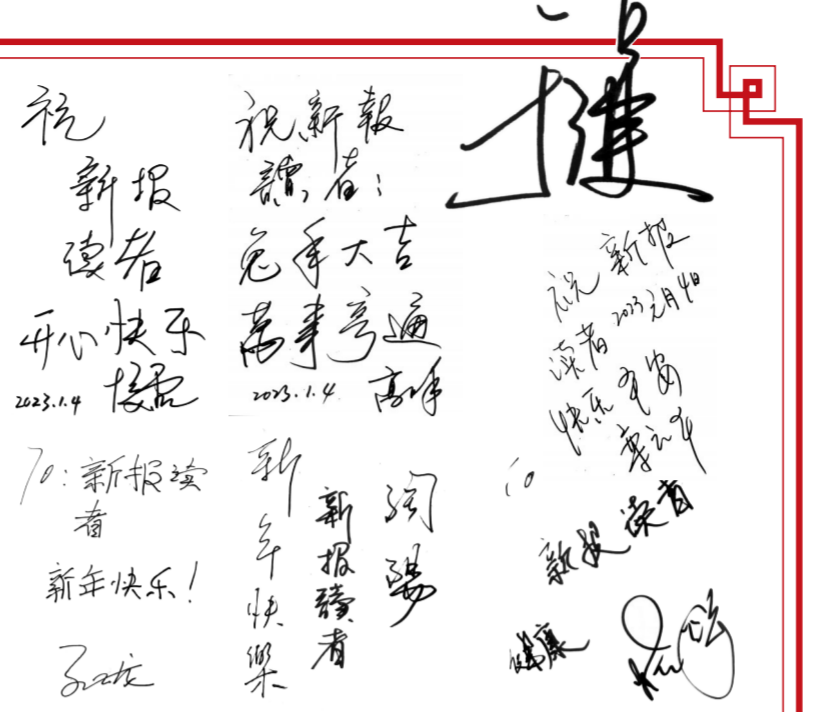 祝
新报
读者
开心快乐
2023.1.4
祝新報
讀者：
兔年大吉
萬事亨通
2023.1.4
祝新报
读者 2023元月4日
快乐平安
To：新报读
者
新年快乐！
新年快樂
新报讀者
To
新报读者
健康